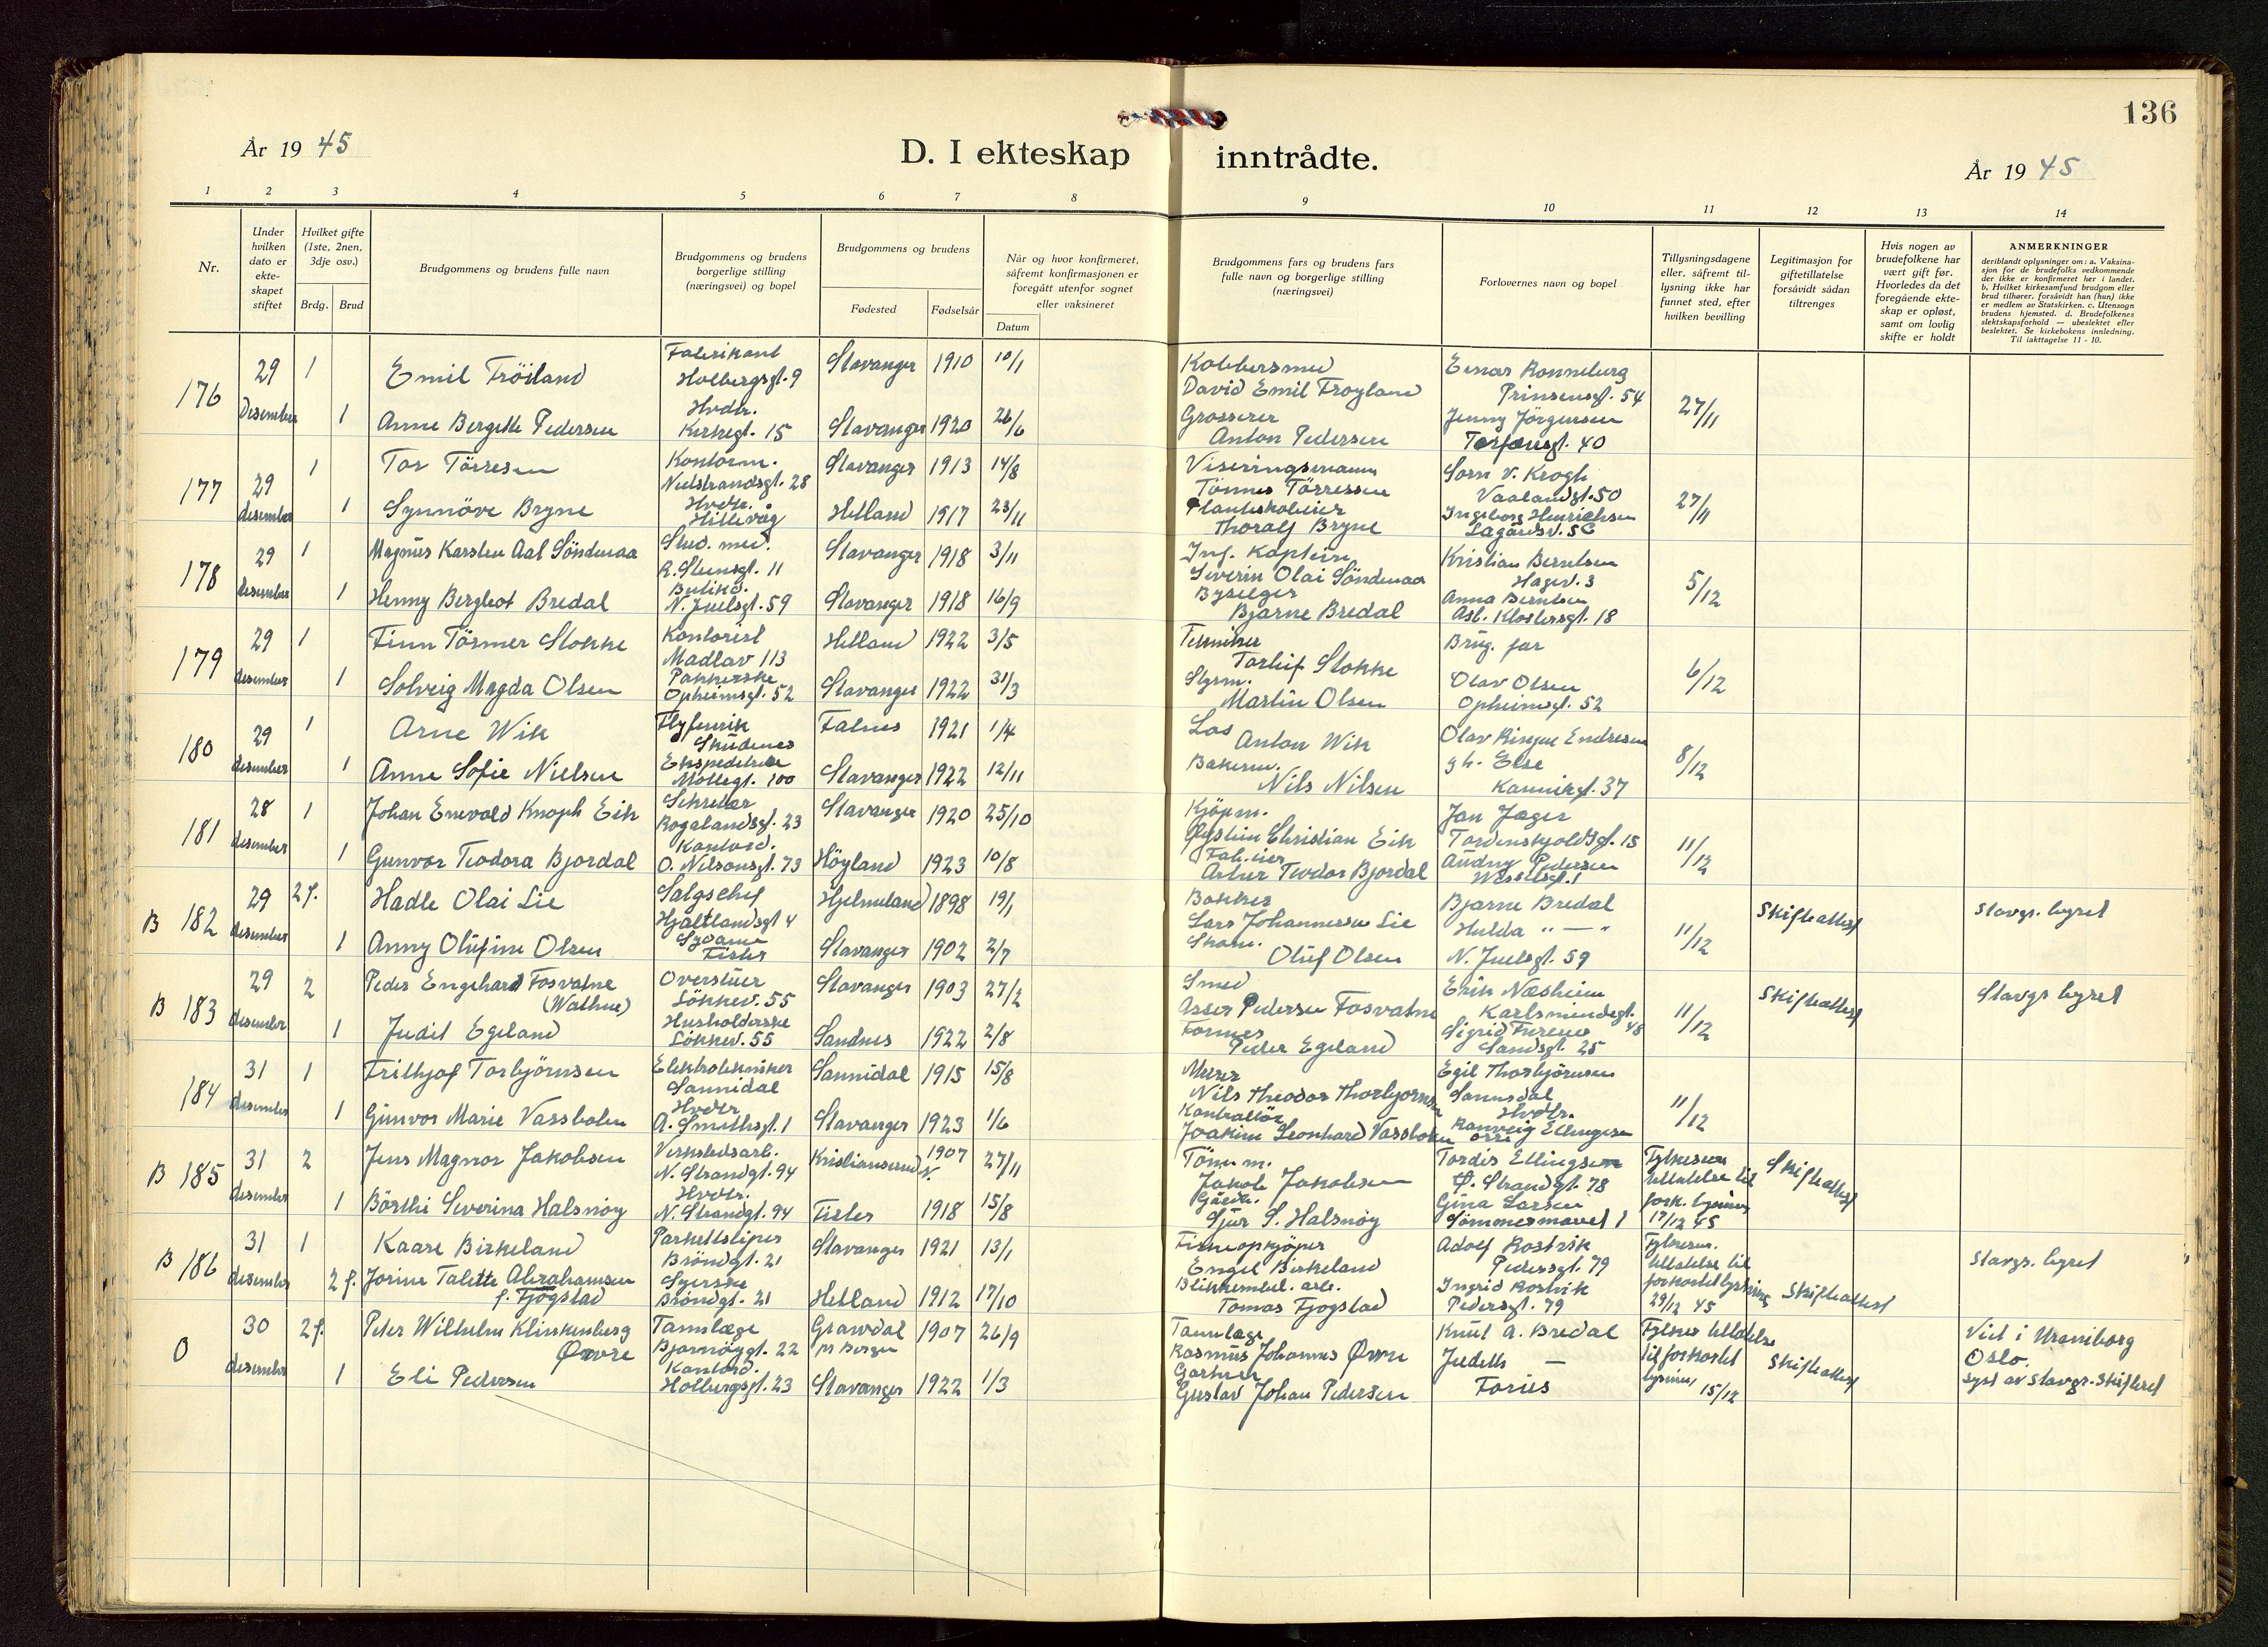 136
År 1945
D. I ekteskap inntrådte.
År 1945
1 2 3 4 5 6 7 8 9 10 11 12 13 14
Nr.
Under hvilken dato er ekte-skapet stiftet
Hvilket gifte (1ste, 2nen, 3dje osv.)
Brdg.
Brud
Brudgommens og brudens fulle navn
Brudgommens og brudens borgerlige stilling (næringsvei) og bopel
Brudgommens og brudens
Fødested
Fødselsår
Når og hvor konfirmeret, såfremt konfirmasjonen er foregått utenfor sognet eller vaksineret
Datum
Brudgommens fars og brudens fars fulle navn og borgerlige stilling (næringsvei)
Forlovernes navn og bopel
Tillysningsdagene eller, såfremt til-lysning ikke har funnet sted, efter hvilken bevilling
Legitimasjon for giftetillatelse forsåvidt sådan tiltrenges
Hvis nogen av brudefolkene har vært gift før. Hvorledes da det foregående ekte-skap er opløst, samt om lovlig skifte er holdt
ANMERKNINGER
deriblandt oplysninger om: a. Vaksina-
sjon for de brudefolks vedkommende
der ikke er konfirmeret her i landet.
b. Hvilket kirkesamfund brudgom eller
brud tilhører, forsåvidt han (hun) ikke
er medlem av Statskirken. c. Utensogn
brudens hjemsted. d. Brudefolkenes
slektskapsforhold — ubeslektet eller
beslektet. Se kirkebokens innledning.
Til iakttagelse 11 - 10.
176 29 Desember 1 Emil Fröiland Fabrikant Holbergsgt. 9 Stavanger 1910 10/1 Kobbersmed David Emil Froyland Einar Ronneberg Prinsensgt. 54 27/11
1 Anne Bergitte Pedersen Hvdtr. Kirkegt. 15 Stavanger 1920 26/6 Grosserer Anton Pedersen Jenny Jörgensen Torfæusgt. 40
177 29 desember 1 Tor Törresen Kontorm. Nedstrandsgt. 28 Stavanger 1913 14/8 Viseringsmann Tönnes Törressen Sorn v. Krogh Vaalandsgt. 50 27/11
1 Synnöve Bryne Hvdtr. Hillevåg Hetland 1917 23/11 Planteskoleeier Thoralf Bryne Ingeborg Henrichsen Lagårdsv. 56
178 29 desember 1 Magnus Karsten Aal Söndenaa Stud. med. R. Steensgt. 11 Stavanger 1918 3/11 Inf. Kaptein Severin Olai Söndenaa Kristian Berntsen Hagev. 3 5/12
1 Henny Bergliot Bredal Butikd. N. Juelsgt. 59 Stavanger 1918 16/9 Byselger Bjarne Bredal Anna Berntsen Asb. Klostersgt. 18
179 29 desember 1 Finn Törmer Stokke Kontorist Madlav 113 Hetland 1922 3/5 Tekniker Torleif Stokke Brug. far 6/12
1 Solveig Magda Olsen Pakkerske Opheimsgt. 52 Stavanger 1922 31/3 Styrm. Martin Olsen Olav Olsen Opheimsgt. 52
180 29 desember 1 Arne Wik Flyfenrik Skudenes Falnes 1921 1/4 Los Anton Wik Olav Ringue Endresen 8/12
1 Anne Sofie Nielsen Ekspeditrise Möllegt. 100 Stavanger 1922 12/11 Bakerm. Nils Nilsen gh. Else Kannikgt. 37
181 28 desember 1 Johan Enevold Knoph Eik Sekretær Rogalandsgt. 23 Stavanger 1920 25/10 Kjöpm. Øystein Christian Eik Jan Jæger Tordenskjoldsgt. 15 11/12
1 Gunvor Teodora Bjordal Kontord. O. Nilsonsgt. 73 Höyland 1923 10/8 Fab.eier Artur Teodor Bjordal Audny Pedersen Wesselsgt. 1
B 182 29 desember 2 f. Hadle Olai Lie Salgschef Hjaltlandsgt 4 Hjelmeland 1898 19/1 Bokker Lars Johannessen Lie Bjarne Bredal 11/12 Skifteattest Stavgr. byret
1 Anny Olufine Olsen Sydame Fister Stavanger 1902 2/7 Skom. Oluf Olsen Hulda " — " N. Juelsgt. 59
B 183 29 desember 2 Peder Engehard Fosvatne (Wathne) Overstuer Lökkev. 55 Stavanger 1903 27/2 Smed Asser Pedersen Fosvatne Erik Næsheim Karlsmindegt. 48 11/12 Skifteattest Stavgr byret
1 Judit Egeland Husholderske Lökkev. 55 Sandnes 1922 2/8 Former Peder Egeland Sigrid Furenes Sandsgt. 25
184 31 desember 1 Frithjof Torbjörnsen Elektrotekniker Sannidal Sannidal 1915 15/8 Murer Nils Theodor Thorbjornsen Egil Thorbjörnsen Sannidal 11/12
1 Gunvor Marie Vassbotn Hvdtr A. Smithsgt. 1 Stavanger 1923 1/6 Kontrollör Joakim Leonhard Vassbotn Hvdtr. Ranveig Ellingsen Orre
B 185 31 desember 2 Jens Magnor Jakobsen Verkstedsarb. N. Strandgt. 94 Kristiansund N. 1907 27/11 Tönn m. Jakob Jakobsen Tordis Ellingsen Ö. Strandgt. 78 Fylkesm tillatelse til fork. lysning 17/12 45 Skifteattest
1 Börthi Severina Halsnöy Hvdtr. N. Strandgt. 94 Fister 1918 15/8 Gårdbr. Sjur S. Halsnöy Gina Larsen Sömmesmauet 1
B 186 31 desember 1 Kaare Birkeland Parkettsliper Bröndgt. 21 Stavanger 1921 13/1 Fiskeopkjöper Engel Birkeland Adolf Rostvik Pedersgt. 79 Fylkesm. tillatelse til forkortet lysning 29/12 45 Skifteattest Stavgr. byret
2 f. Jorine Talette Abrahamsen f. Fjögstad Syerske Bröndgt. 21 Hetland 1912 17/10 Blikkembal. arb. Tomas Fjogstad Ingrid Rostvik Pedersgt. 79
0 30 desember 2 f. Peter Wilhelm Klinkenberg Øvre Tannlæge Bjornöygt. 22 Gravdal pr Bergen 1907 26/9 Tannlæge Rasmus Johannes Øvre Knut A. Bredal Fylkes tillatelse til forkortet lysning 15/12 Skifteattest Viet i Uranienborg Oslo. Lyst av Stavgr. Skifteret
1 Eli Pedersen Kontord. Holbergsgt. 23 Stavanger 1922 1/3 Gartner Gustav Johan Pedersen Judith — Forus